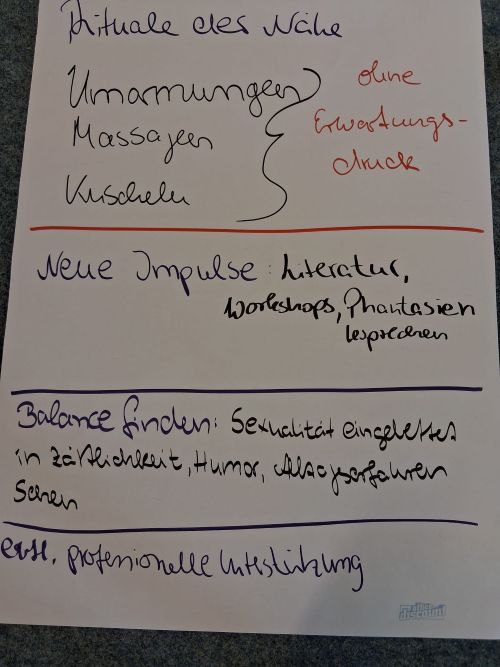 Rituale der Nähe
Umarmungen
Massagen
Kuscheln
ohne
Erwartungs-
druck
Neue Impulse: Literatur,
Workshops, Phantasien
besprechen
Balance finden: Sexualität eingebettet
in Zärtlichkeit, Humor,
evtl. professionelle Unterstützung
discount